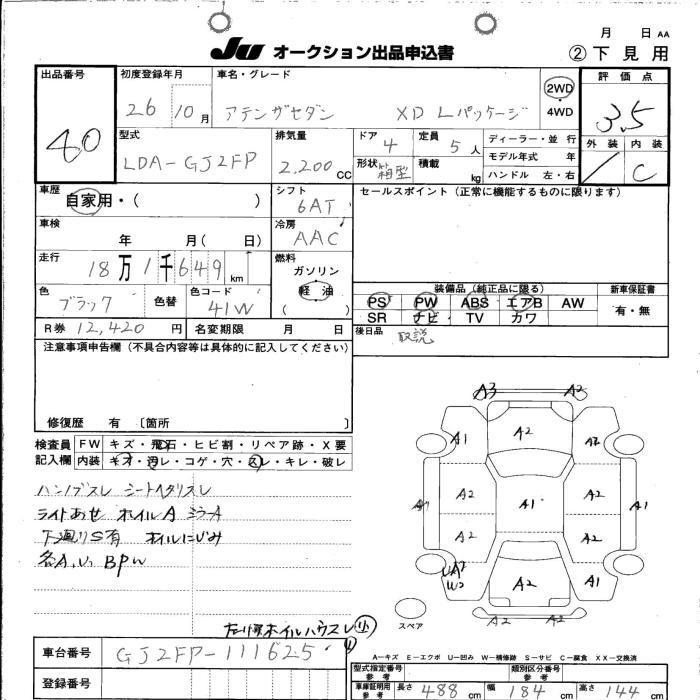 月 日 AA
JU オークション出品申込書 ②下見用
出品番号 初度登録年月 車名・グレード 評価点
40 26 10月 アテンザセダン XD Lパッケージ 2WD・4WD 3.5
型式 排気量 ドア 4 定員 5人 ディーラー・並行 外装 内装
LDA-GJ2FP 2,200CC 形状 箱型 積載 kg モデル年式 年 C
ハンドル 左・右
車歴 自家用・( ) シフト セールスポイント(正常に機能するものに限ります)
6AT
車検 冷房
年 月( 日) AAC
走行 燃料
18万1千649km ガソリン
軽油
( )
色 色替 色コード 装備品(純正品に限る) 新車保証書
ブラック 41W PS PW ABS エアB AW 有・無
SR ナビ TV カワ
R券 12,420円 名変期限 月 日 後日品 取説
注意事項申告欄(不具合内容等は具体的に記入してください)
修復歴 有 〔箇所 〕
検査員 FW キズ・飛石・ヒビ割・リペア跡・X要
記入欄 内装 キズ・汚レ・コゲ・穴・スレ・キレ・破レ
ハンドルスレ シートヘタリスレ
ライトあせ ホイルA ミラーA
下廻りS有 ホイルにじみ
各A,U, BPW
A3 A2
A1 A2 A2
A2 A1 A2 A1
A2 A2
A2 A1
A2 A2
スペア
車台番号 GJ2FP-111625
A-キズ E-エクボ U-凹み W-補修跡 S-サビ C-腐食 XX-交換済
登録番号 型式指定番号 参考 類別区分番号 参考
車庫証明用 参考 長さ 488cm 幅 184cm 高さ 144cm